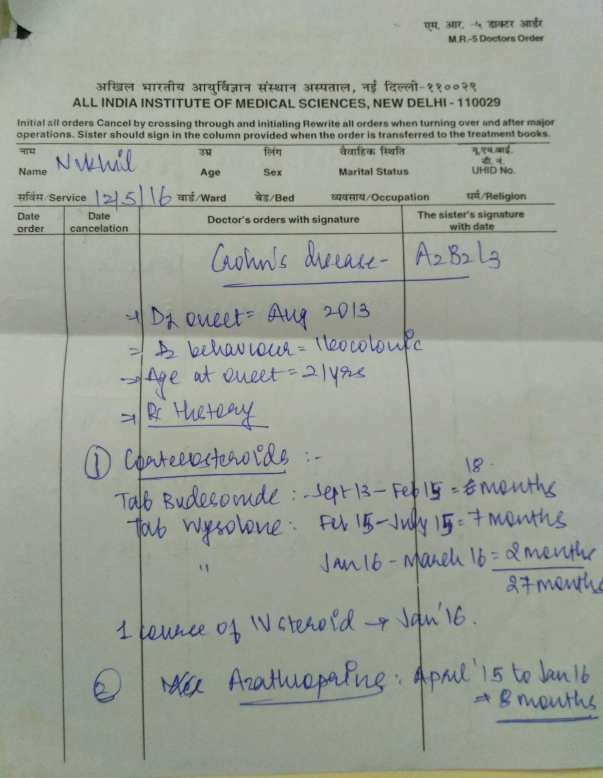 एम. आर. -५ डाक्टर आर्डर
M.R.-5 Doctors Order
अखिल भारतीय आयुर्विज्ञान संस्थान अस्पताल, नई दिल्ली-११००२९
ALL INDIA INSTITUTE OF MEDICAL SCIENCES, NEW DELHI - 110029
Initial all orders Cancel by crossing through and initialing Rewrite all orders when turning over and after major
operations. Sister should sign in the column provided when the order is transferred to the treatment books.
नाम उम्र लिंग वैवाहिक स्थिति यू.एच.आई.
डी. नं.
Name Nikhil Age Sex Marital Status UHID No.
सर्विस/Service 12/5/16 वार्ड/Ward बेड/Bed व्यवसाय/Occupation धर्म/Religion
Date order Date cancelation Doctor's orders with signature The sister's signature with date
Crohn's disease - A2B2L3
→ Dz onset = Aug 2013
→ Dz behaviour = Ileocolonic
→ Age at onset = 21yrs
→ Rx History
① Corticosteroids :-
Tab Budesonide : Sept 13 - Feb 15 = 18 months
Tab Wysolone : Feb 15 - July 15 = 7 months
" Jan 16 - March 16 = 2 months
27 months
1 course of IV steroid → Jan'16.
② Azathioprine : April '15 to Jan 16
→ 8 months